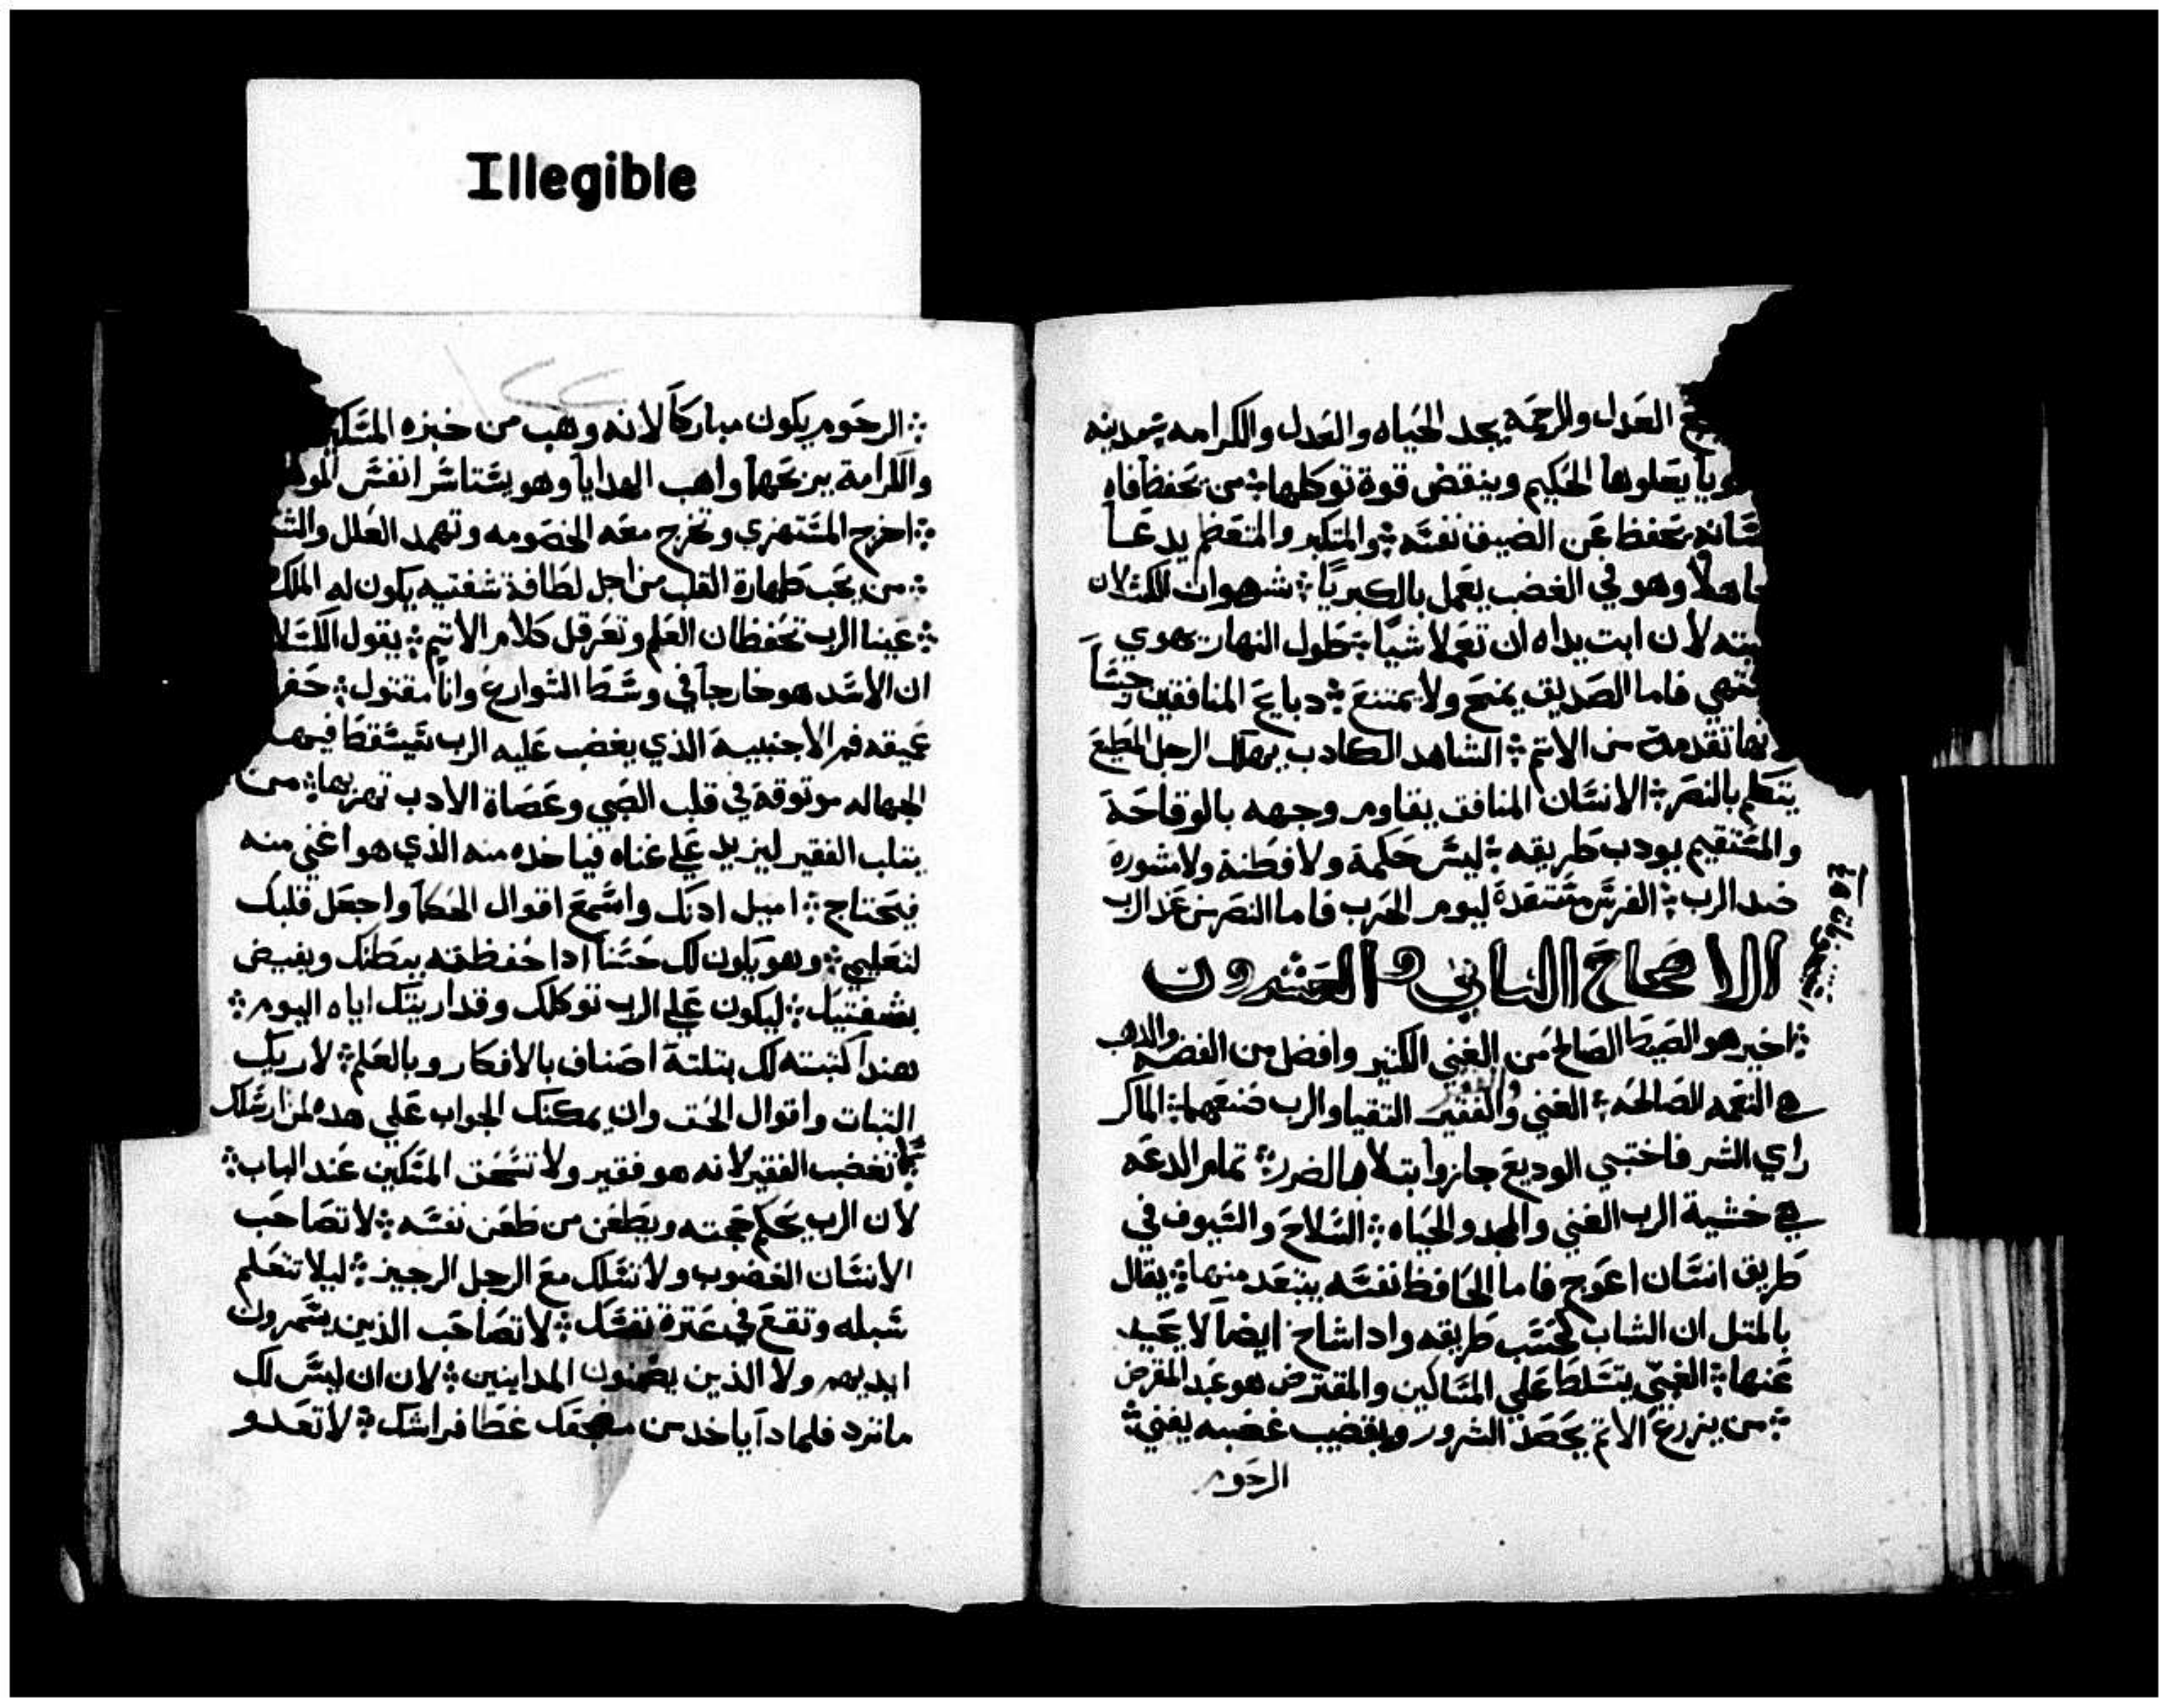 Illegible
العدل والرحمه يجد الحياه والعدل والكرامه مدينه
يعلوها الحكيم وينقض قوة توكلها من يحفظ فاه
يحفظ عن الضيف نفسه والمتكبر والمتعظم يدعا
جاهلاً وهو في الغضب يعمل بالكبريا شهوات الكسلان
لان ابت يداه ان تعملا شيا طول النهار يهوي
ويشتهي فاما الصديق يمنح ولا يمتنع دبايح المنافقين
تقدمة من الاتم الشاهد الكادب يهلك الرجل المطيع
يتكلم بالنصر الانسان المنافق يقاوم وجهه بالوقاحة
والمستقيم يودب طريقه ليس حكمة ولا فطنة ولا مشورة
ضد الرب الفرس مستعدة ليوم الحرب فاما النصر من عند الرب
الاصحاح التاني والعشرون
اخير هو الصيط الصالح من الغني الكتير وافضل من الفضه والدهب
هي النعمه الصالحه الغني والفقير التقيا والرب صنعهما الماكر
راي الشر فاختبي الوديع جاز وابتلا بالضرر تمام الدعه
هي خشية الرب الغني والمجد والحياه السلاح والسيوف في
طريق انسان اعوج فاما الحافظ نفسه يبتعد منها يقال
بالمتل ان الشاب كحسب طريقه وادا شاخ ايضاً لا يحيد
عنها الغني يتسلط علي المساكين والمقترض هو عبد المقرض
من يزرع الاتم يحصد الشرور وبقضيب غضبه يفني
الرحوم
١٢٢
الرحوم يكون مباركاً لانه وهب من خبزه المسكين
والكرامة يربحها واهب الهدايا وهو يستاسر انفس
اخرج المستهزي وتخرج معه الخصومه وتهمد العلل
من يحب طهارة القلب من اجل لطافة شفتيه يكون له الملك
عينا الرب تحفظان العلم وتعرقل كلام الاتيم يقول الكسلا
ان الاسد هو خارجاً في وسط الشوارع وانا مقتول حفرا
عميقه فم الاجنبية الذي يغضب عليه الرب فيسقط فيها
الجهاله موتوقة في قلب الصبي وعصاة الادب تهزبها من
يتلب الفقير ليزيد علي غناه فياخده منه الذي هو اغني منه
فيحتاج اميل ادنك واسمع اقوال الحكما واجعل قلبك
لتعليمي وهو يكون لك حسناً ادا حفظته ببطنك ويفيض
بشفتيك ليكون علي الرب توكلك وقد اريتك اياه اليوم
هندا كتبته لك بتلتة اصناف بالافكار وبالعلم لاريك
التبات واقوال الحق وان يمكنك الجواب علي هده لمن ارسلك
لا تغضب الفقير لانه هو فقير ولا تسحق المسكين عند الباب
لان الرب يحكم حجته ويطعن من طعن نفسه لا تصاحب
الانسان الغضوب ولا تسلك مع الرجل الرجيز ليلا تتعلم
سبله وتقع في عترة نفسك لا تصاحب الذين يسمرون
ايديهم ولا الذين يضمنون المداينين لان ان ليس لك
ما ترد فلمادا ياخد من مضجعك غطا فراشك لا تعدو